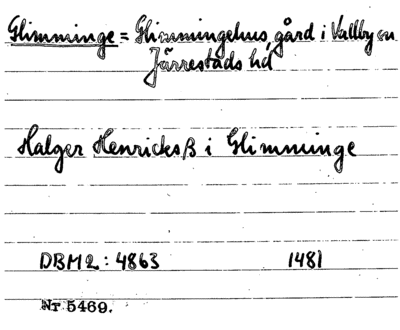 Glimminge = Glimmingehus, gård i Vallby sn
Järrestads hd
Halger Henricksß i Glimminge
DBM2: 4863 1481
Nr 5469.